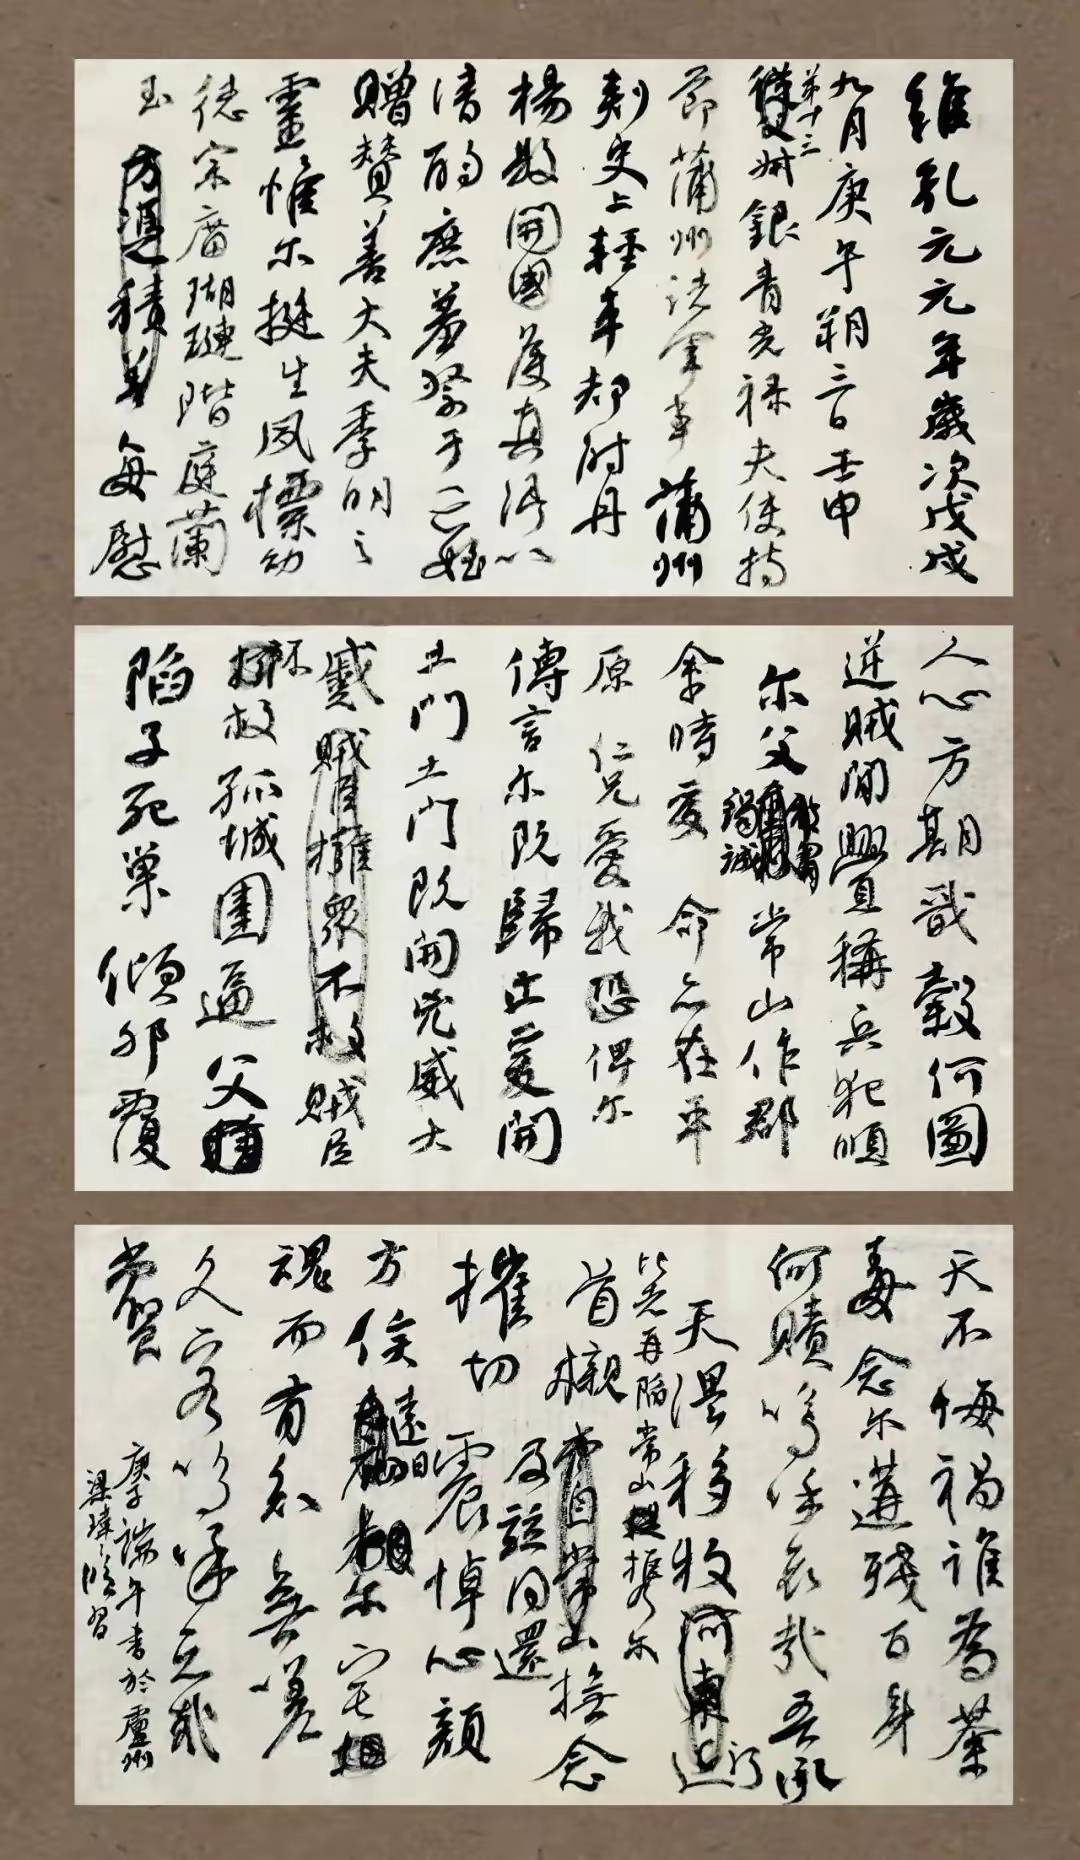 維乾元元年歲次戊戌
九月庚午朔三日壬申
第十三
從父姪銀青光祿夫使持
節蒲州諸軍事蒲州
刺史上輕車都尉丹
楊縣開國侯真卿以
清酌庶羞祭于亡姪
贈贊善大夫季明之
靈惟尔挺生夙標幼
德宗廟瑚璉階庭蘭
玉方憑積善每慰
人心方期戩穀何圖
逆賊閒釁稱兵犯順
尔父竭誠常山作郡
余時受命亦在平
原仁兄愛我恐俾尔
傳言尔既歸止爰開
土門土門既開兇威大
蹙賊臣擁衆不救賊臣
不救孤城圍逼父
陷子死巢傾卵覆
天不悔禍誰為荼
毒念尔遘殘百身
何贖嗚呼哀哉吾承
天澤移牧河東近
河
泉明比者再陷常山攜尔
首櫬常山撫念
及茲同還
摧切震悼心顏
方俟遠日尔幽宅
魂而有知無嗟
久客嗚呼哀哉
尚饗
庚子端午書於盧州
梁瑋臨習